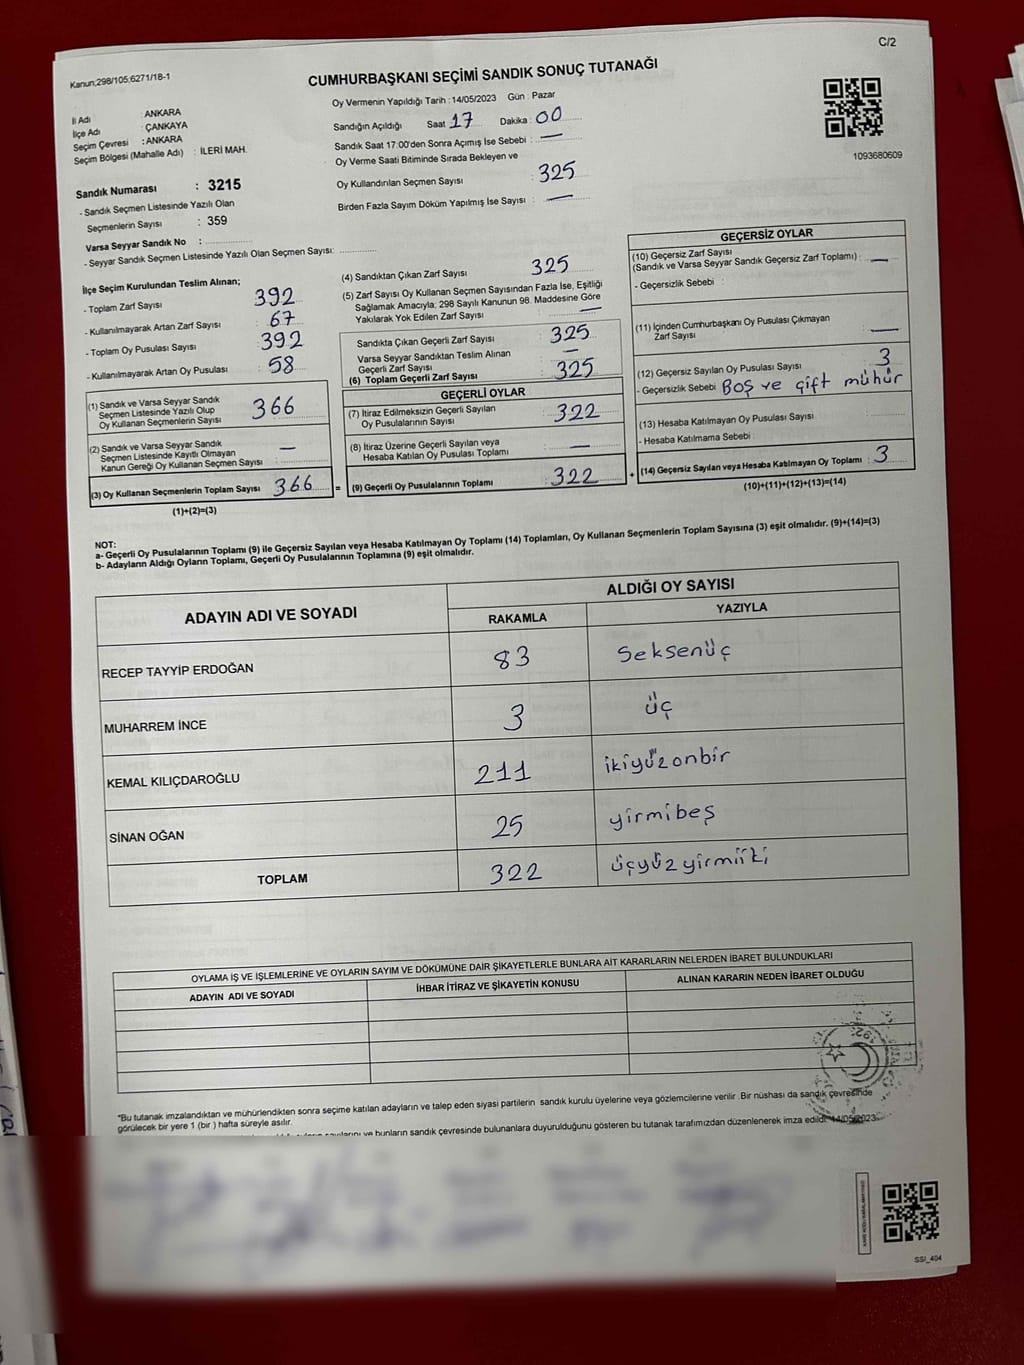 C/2
Kanun;298/105;6271/18-1
CUMHURBAŞKANI SEÇİMİ SANDIK SONUÇ TUTANAĞI
İl Adı : ANKARA
İlçe Adı : ÇANKAYA
Seçim Çevresi : ANKARA
Seçim Bölgesi (Mahalle Adı) : İLERİ MAH.
Oy Vermenin Yapıldığı Tarih : 14/05/2023 Gün : Pazar
Sandığın Açıldığı Saat 17 Dakika : 00
Sandık Saat 17:00'den Sonra Açılmış İse Sebebi : —
Oy Verme Saati Bitiminde Sırada Bekleyen ve
Oy Kullandırılan Seçmen Sayısı : 325
Birden Fazla Sayım Döküm Yapılmış İse Sayısı : —
1093680609
Sandık Numarası : 3215
- Sandık Seçmen Listesinde Yazılı Olan
Seçmenlerin Sayısı : 359
Varsa Seyyar Sandık No :
- Seyyar Sandık Seçmen Listesinde Yazılı Olan Seçmen Sayısı:
İlçe Seçim Kurulundan Teslim Alınan;
- Toplam Zarf Sayısı : 392
- Kullanılmayarak Artan Zarf Sayısı : 67
- Toplam Oy Pusulası Sayısı : 392
- Kullanılmayarak Artan Oy Pusulası : 58
(1) Sandık ve Varsa Seyyar Sandık
Seçmen Listesinde Yazılı Olup
Oy Kullanan Seçmenlerin Sayısı : 366
(2) Sandık ve Varsa Seyyar Sandık
Seçmen Listesinde Kayıtlı Olmayan
Kanun Gereği Oy Kullanan Seçmen Sayısı : —
(3) Oy Kullanan Seçmenlerin Toplam Sayısı : 366
(1)+(2)=(3)
(4) Sandıktan Çıkan Zarf Sayısı : 325
(5) Zarf Sayısı Oy Kullanan Seçmen Sayısından Fazla İse, Eşitliği
Sağlamak Amacıyla; 298 Sayılı Kanunun 98. Maddesine Göre
Yakılarak Yok Edilen Zarf Sayısı : —
Sandıkta Çıkan Geçerli Zarf Sayısı : 325
Varsa Seyyar Sandıktan Teslim Alınan
Geçerli Zarf Sayısı : —
(6) Toplam Geçerli Zarf Sayısı : 325
GEÇERLİ OYLAR
(7) İtiraz Edilmeksizin Geçerli Sayılan
Oy Pusulalarının Sayısı : 322
(8) İtiraz Üzerine Geçerli Sayılan veya
Hesaba Katılan Oy Pusulası Toplamı : —
= (9) Geçerli Oy Pusulalarının Toplamı : 322
GEÇERSİZ OYLAR
(10) Geçersiz Zarf Sayısı
(Sandık ve Varsa Seyyar Sandık Geçersiz Zarf Toplamı) : —
- Geçersizlik Sebebi :
(11) İçinden Cumhurbaşkanı Oy Pusulası Çıkmayan
Zarf Sayısı : —
(12) Geçersiz Sayılan Oy Pusulası Sayısı : 3
- Geçersizlik Sebebi : BOŞ ve çift mühür
(13) Hesaba Katılmayan Oy Pusulası Sayısı :
- Hesaba Katılmama Sebebi :
+ (14) Geçersiz Sayılan veya Hesaba Katılmayan Oy Toplamı : 3
(10)+(11)+(12)+(13)=(14)
NOT:
a- Geçerli Oy Pusulalarının Toplamı (9) ile Geçersiz Sayılan veya Hesaba Katılmayan Oy Toplamı (14) Toplamları, Oy Kullanan Seçmenlerin Toplam Sayısına (3) eşit olmalıdır. (9)+(14)=(3)
b- Adayların Aldığı Oyların Toplamı, Geçerli Oy Pusulalarının Toplamına (9) eşit olmalıdır.
ADAYIN ADI VE SOYADI ALDIĞI OY SAYISI
RAKAMLA YAZIYLA
RECEP TAYYİP ERDOĞAN 83 Seksenüç
MUHARREM İNCE 3 üç
KEMAL KILIÇDAROĞLU 211 ikiyüzonbir
SİNAN OĞAN 25 yirmibeş
TOPLAM 322 üçyüzyirmiiki
OYLAMA İŞ VE İŞLEMLERİNE VE OYLARIN SAYIM VE DÖKÜMÜNE DAİR ŞİKAYETLERLE BUNLARA AİT KARARLARIN NELERDEN İBARET BULUNDUKLARI
ADAYIN ADI VE SOYADI İHBAR İTİRAZ VE ŞİKAYETİN KONUSU ALINAN KARARIN NEDEN İBARET OLDUĞU
*Bu tutanak imzalandıktan ve mühürlendikten sonra seçime katılan adayların ve talep eden siyasi partilerin sandık kurulu üyelerine veya gözlemcilerine verilir. Bir nüshası da sandık çevresinde
görülecek bir yere 1 (bir) hafta süreyle asılır.
ve bunların sandık çevresinde bulunanlara duyurulduğunu gösteren bu tutanak tarafımızdan düzenlenerek imza edildi. 14/05/2023
SSİ_404